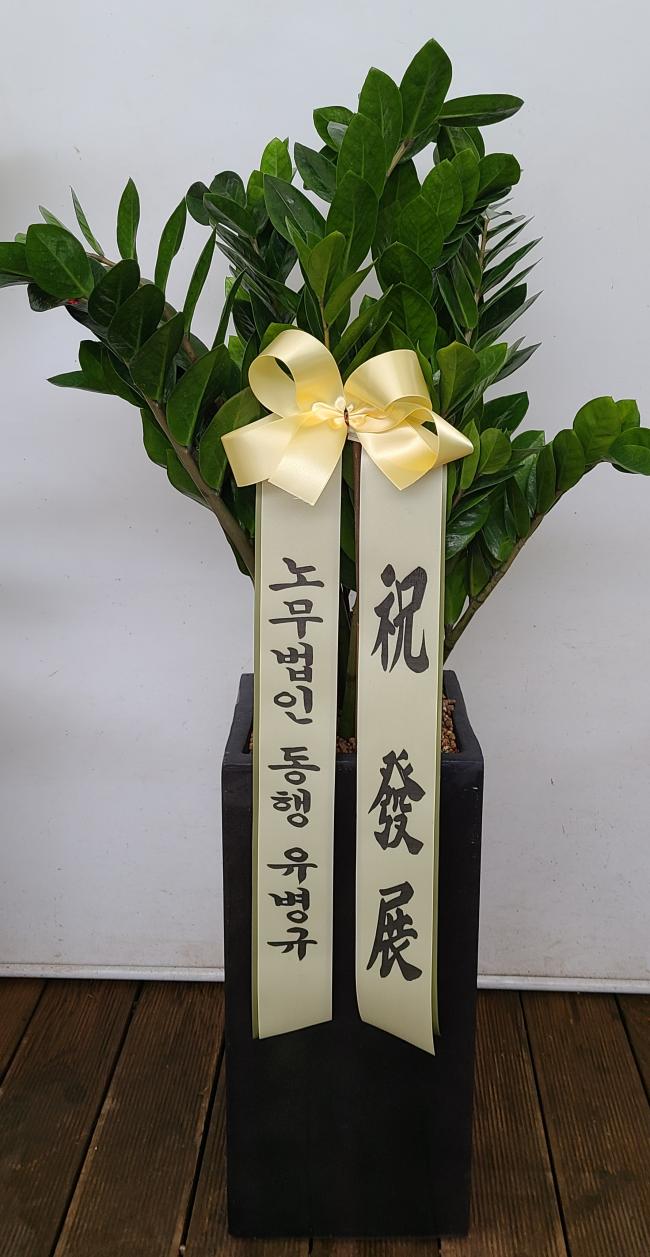 祝 發展
노무법인 동행 유병규